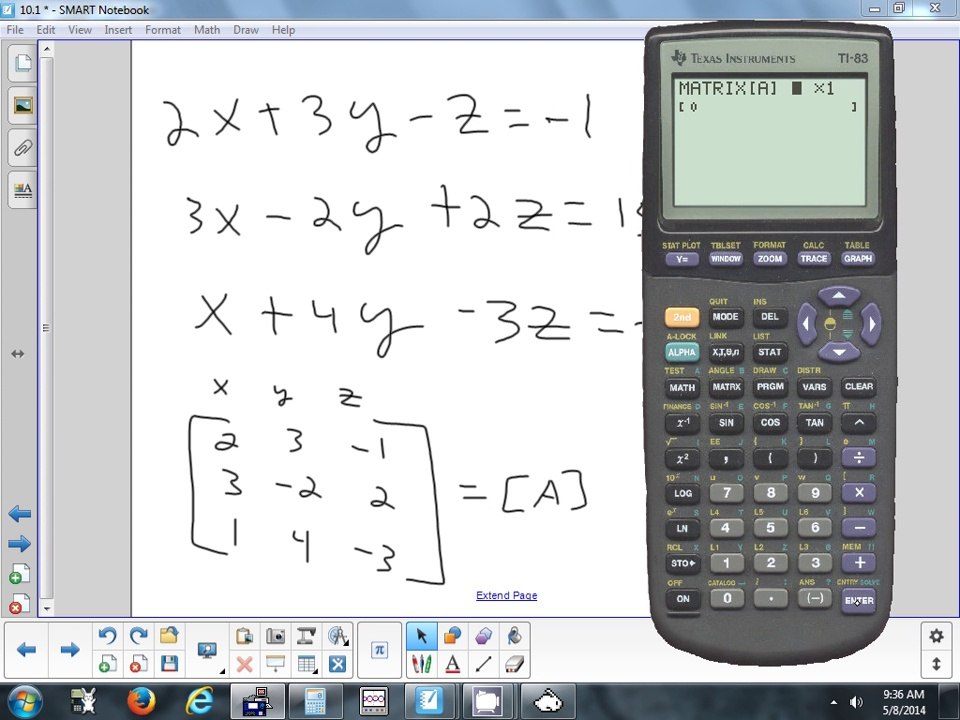 10.1 * - SMART Notebook
File Edit View Insert Format Math Draw Help
2x + 3y - z = -1
3x - 2y + 2z = 1
x + 4y - 3z = -
x y z
2 3 -1
3 -2 2
1 4 -3
= [A]
Extend Page
TEXAS INSTRUMENTS TI-83
MATRIX[A] ×1
[ 0 ]
STAT PLOT TBLSET FORMAT CALC TABLE
Y= WINDOW ZOOM TRACE GRAPH
QUIT INS
2nd MODE DEL
A-LOCK LINK LIST
ALPHA X,T,θ,n STAT
TEST A ANGLE B DRAW C DISTR
MATH MATRX PRGM VARS CLEAR
FINANCE D SIN⁻¹ E COS⁻¹ F TAN⁻¹ G π H
x⁻¹ SIN COS TAN ^
√ I EE J { K } L e M
x² , ( ) ÷
10ˣ N u O v P w Q [ R
LOG 7 8 9 ×
eˣ S L4 T L5 U L6 V ] W
LN 4 5 6 −
RCL X L1 Y L2 Z L3 θ MEM "
STO▸ 1 2 3 +
OFF CATALOG i : ANS ? ENTRY SOLVE
ON 0 . (−) ENTER
9:36 AM
5/8/2014